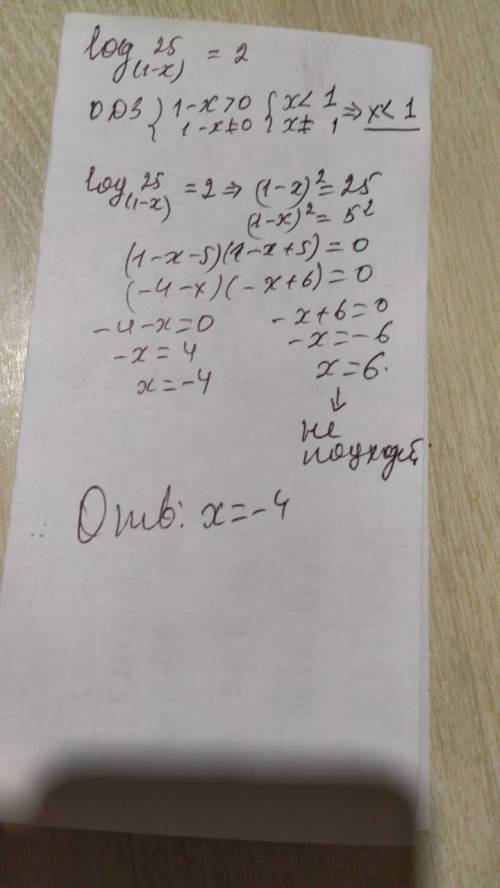 log₍₁₋ₓ₎ 25 = 2
ОДЗ { 1-x>0 { x<1 ⇒ x<1
{ 1-x≠0 { x≠1
log₍₁₋ₓ₎ 25 = 2 ⇒ (1-x)² = 25
(1-x)² = 5²
(1-x-5)(1-x+5)=0
(-4-x)(-x+6)=0
-4-x=0 -x+6=0
-x=4 -x=-6
x=-4 x=6.
↓
не
подходит.
Отв: x=-4